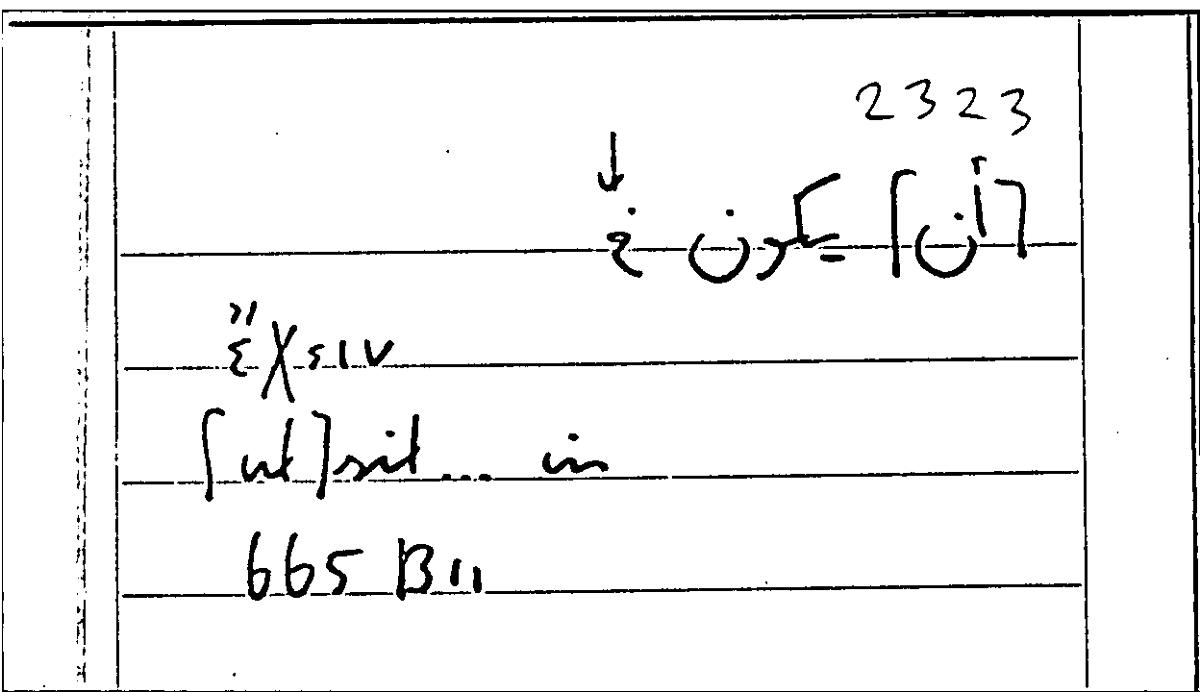 2323
↓
[أن] يكون في
ἔχειν
[ut] sit ... in
665 B 11